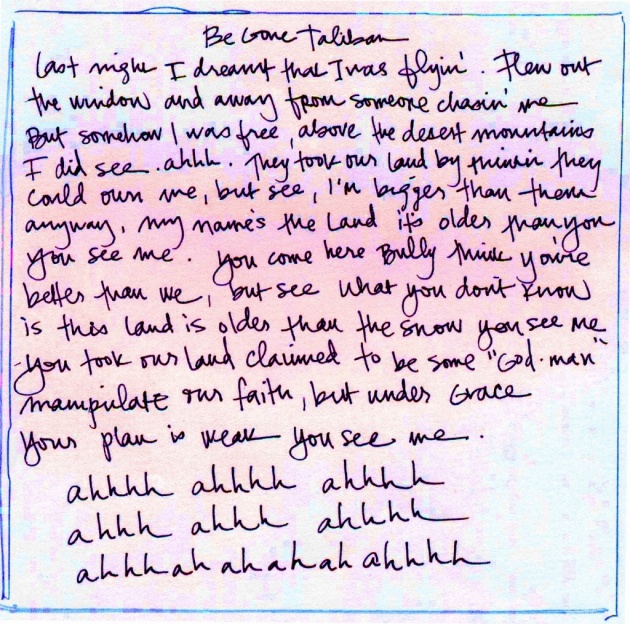 Be Gone Taliban
Last night I dreamt that I was flyin'. Flew out
the window and away from someone chasin' me
But somehow I was free, above the desert mountains
I did see. ahhh. They took our land by thinkin they
could own me, but see, I'm bigger than them
anyway, my name's the Land it's older than you
you see me. You come here Bully think you're
better than we, but see what you don't know
is this land is older than the snow you see me
You took our land claimed to be some "God-man"
manipulate our faith, but under Grace
your plan is weak you see me.
ahhhh ahhhh ahhhh
ahhh ahhh ahhhh
ahhhah ahahah ahhhh